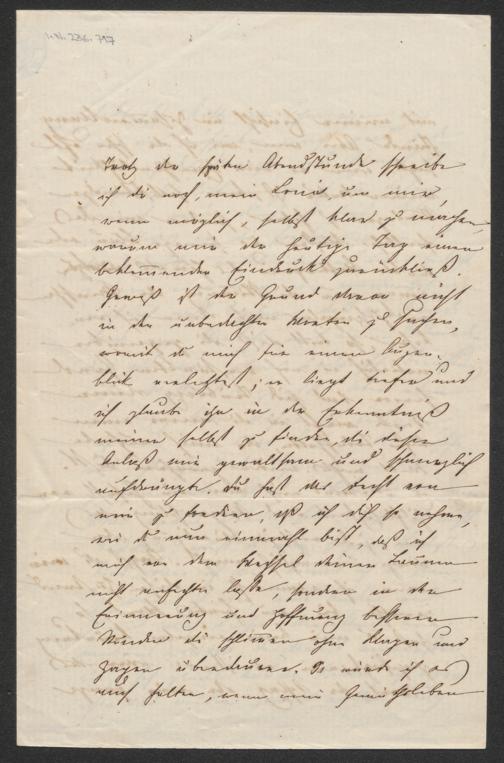 I.N. 226.797
Trotz der späten Abendstunde schreibe
ich dir noch, mein Louis, um mir,
wenn möglich, selbst klar zu machen,
warum mir der heutige Tag einen
beklemmenden Eindruck zurückließ.
Gewiß ist der Grund davon nicht
in den unbedachten Worten zu suchen,
womit du mich für einen Augen-
blick verletztest; er liegt tiefer und
ich glaube ihn in der Erkenntniß
meiner selbst zu finden, die dieser
Anlaß mir gewaltsam und schmerzlich
aufdrängte. Du hast das Recht von
mir zu fordern, daß ich dich so nehme,
wie du nun einmahl bist, daß ich
mich von dem Wechsel deiner Launen
nicht anfechten lasse, sondern in der
Erinnerung und Hoffnung besserer
Stunden die schlimmen ohne Klagen und
Zagen überdauere. So würde ich es
auch halten, wenn mein Gemüthsleben